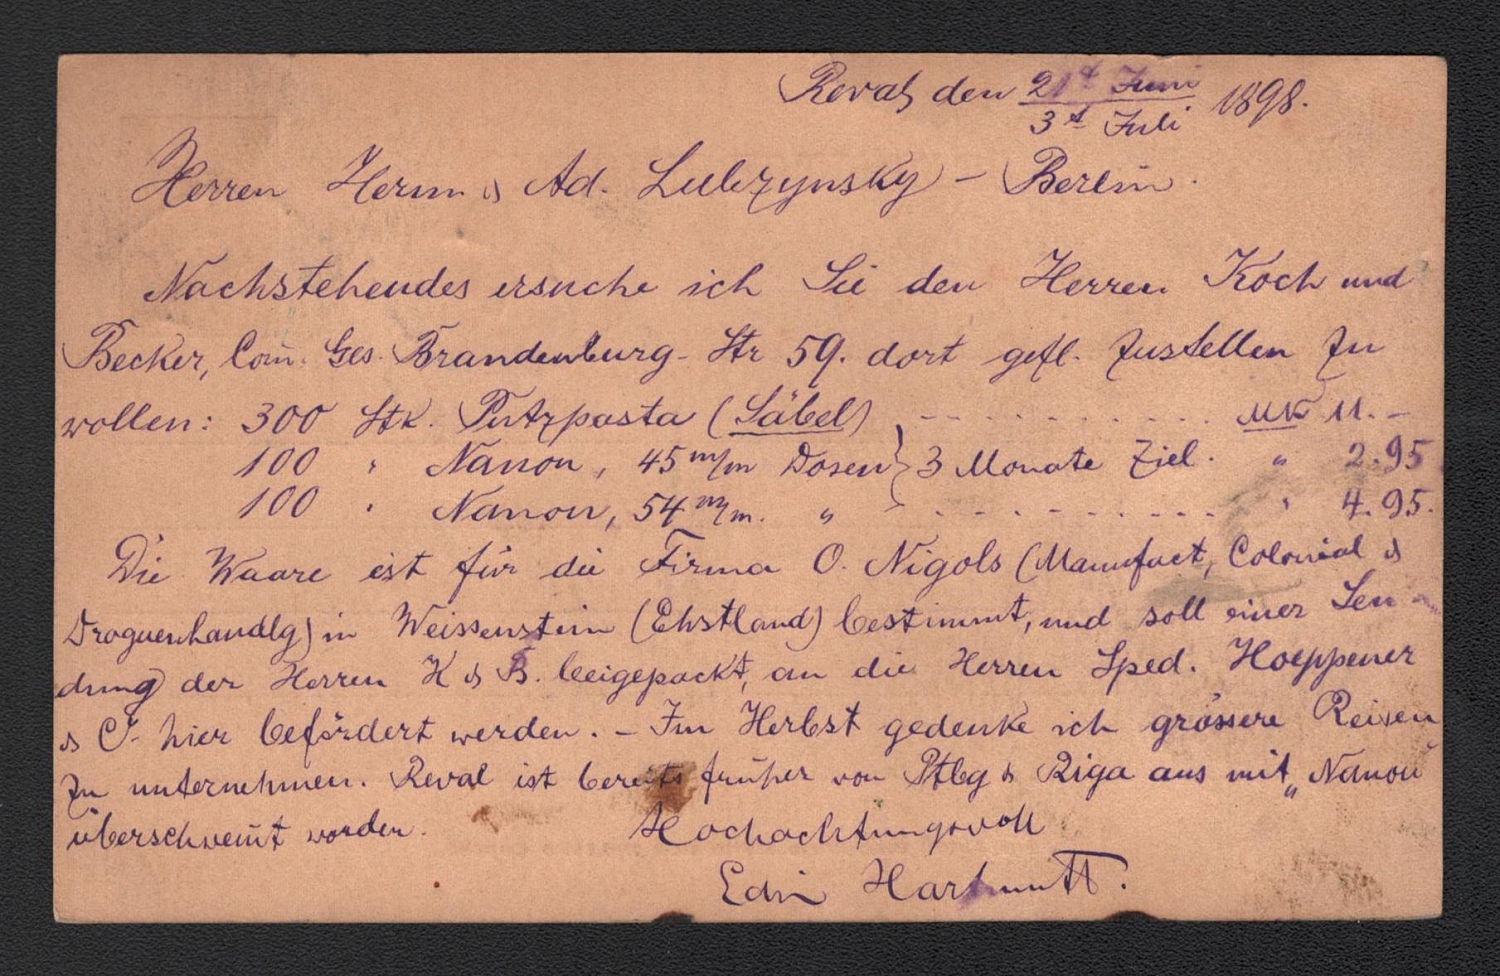 Reval den 21t Juni / 3t Juli 1898.
Herren Herm & Ad. Lubszynsky – Berlin.
Nachstehendes ersuche ich Sie den Herren Koch und
Becker, Com. Ges. Brandenburg-Str 59. dort gefl. zustellen zu
wollen: 300 Stk. Putzpasta (Säbel) - - - - - - - - - - Mk 11.–
100 " Nanon, 45 m/m Dosen } 3 Monate Ziel. " 2.95
100 " Nanon, 54 m/m. " - - - - - - - - - - - " 4.95.
Die Waare ist für die Firma O. Nigols (Manufact, Colonial &
Droguenhandlg) in Weissenstein (Ehstland) bestimmt, und soll einer Sen-
dung der Herren K & B. beigepackt, an die Herren Sped. Hoeppener
& C° hier befördert werden. – Im Herbst gedenke ich grössere Reisen
zu unternehmen. Reval ist bereits früher von Ptbg & Riga aus mit „Nanon“
überschwemt worden. Hochachtungsvoll